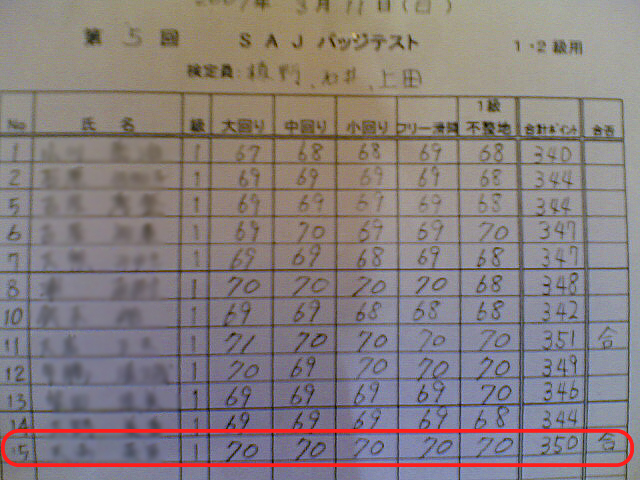 2007年 3月11日(日)
第 5 回 SAJ バッジテスト 1・2級用
検定員: 植野、石井、上田
No 氏 名 級 大回り 中回り 小回り フリー滑降 1級 不整地 合計ポイント 合否
1 1 67 68 68 69 68 340
2 1 69 69 69 69 68 344
5 1 69 69 67 69 68 344
6 1 69 70 69 69 70 347
7 1 69 69 68 69 68 347
8 1 70 70 70 70 68 348
10 1 69 69 68 68 68 342
11 1 71 70 70 70 70 351 合
12 1 70 69 70 70 70 349
13 1 69 69 69 69 70 346
14 1 69 69 69 69 68 344
15 1 70 70 70 70 70 350 合